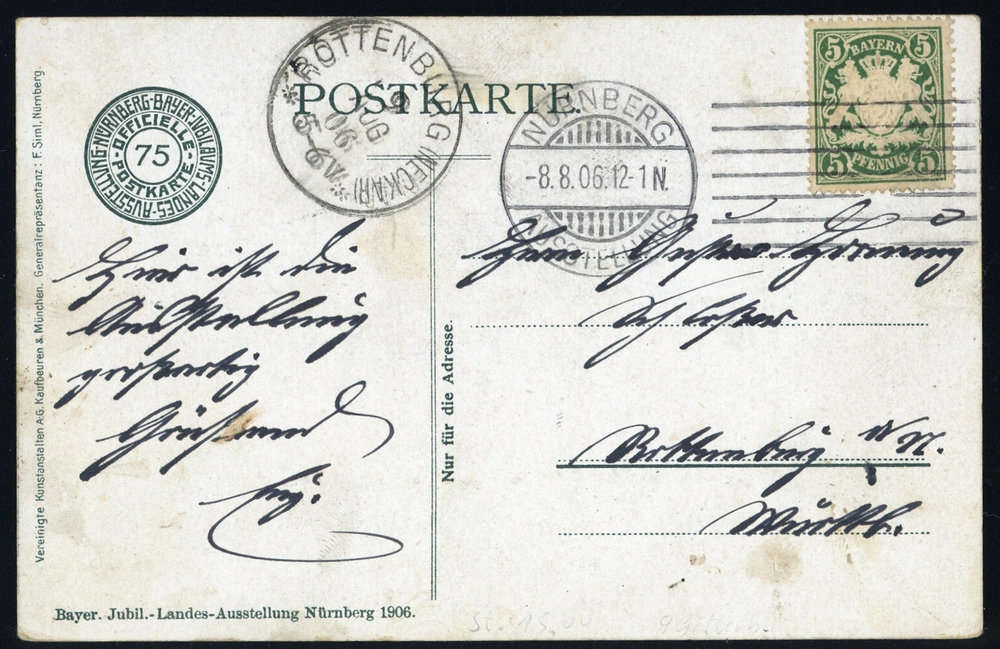 POSTKARTE.
NÜRNBERG-BAYER. JUBILÄUMS-LANDES-AUSSTELLUNG
OFFICIELLE POSTKARTE
75
ROTTENBURG (NECKAR)
AUG
06
NÜRNBERG
-8.8.06.12-1 N.
AUSSTELLUNG
5 BAYERN 5
5 PFENNIG 5
Vereinigte Kunstanstalten A.G. Kaufbeuren & München. Generalrepräsentanz: F. Sirnl, Nürnberg.
Hier ist die
Ausstellung
großartig
Grüßend
Herrn Gustav Hornung
Schlosser
Rottenburg a N.
Württb.
Nur für die Adresse.
Bayer. Jubil.-Landes-Ausstellung Nürnberg 1906.